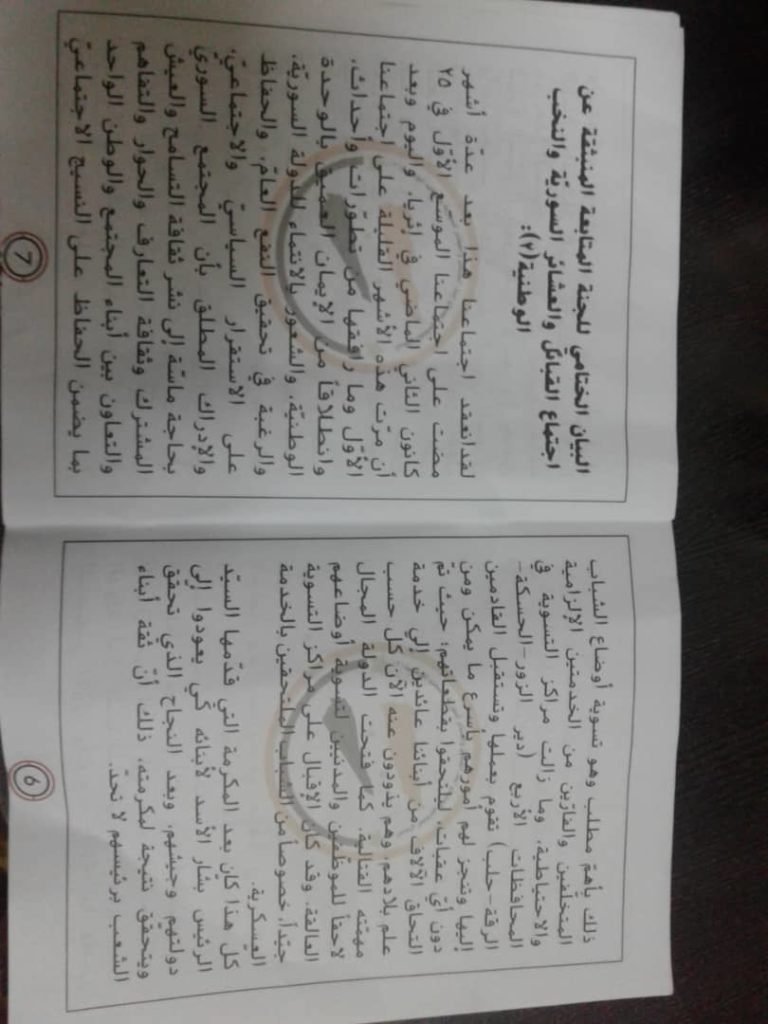 ذلك بأهم مطلب وهو تسوية أوضاع الشباب
المتخلّفين والفارّين من الخدمتين الإلزامية
والاحتياطية، وما زالت مراكز التسوية في
المحافظات الأربع (دير الزور-الحسكة-
الرقة-حلب) تقوم بعملها وتستقبل القادمين
إليها وتنجز لهم أمورهم بأسرع ما يمكن ومن
دون أيّ عقبات، ليلتحقوا بقطعاتهم؛ حيث تمّ
التحاق الآلاف من أبنائنا عائدين إلى خدمة
علم بلادهم، وهم يذودون عنه الآن كل حسب
مهمّته القتالية. كما فتحت الدولة المجال
لاحقاً للموظفين والمدنيين لتسوية أوضاعهم
العالقة. وقد كان الإقبال على مراكز التسوية
جيّداً، خصوصاً من الشباب الملتحقين بالخدمة
العسكرية.
كل هذا كان بعد المكرمة التي قدّمها السيّد
الرئيس بشار الأسد لأبنائه كي يعودوا إلى
دولتهم وجيشهم، وبعد النجاح الذي تحقق
ويتحقق نتيجة لمكرمته، ذلك أنّ ثقة أبناء
الشعب برئيسهم لا تحدّ.
6
البيان الختامي للجنة المتابعة المنبثقة عن
اجتماع القبائل والعشائر السوريّة والنخب
الوطنية(٢):
لقد انعقد اجتماعنا هذا بعد عدّة أشهر
مضت على اجتماعنا الموسّع الأوّل في ٢٥
كانون الثاني الماضي في إثريا، واليوم وبعد
أن مرّت هذه الأشهر القليلة على اجتماعنا
الأوّل وما رافقها من تطوّرات وأحداث،
وانطلاقاً من الإيمان العميق بالوحدة
الوطنيّة، والشعور بالانتماء للدولة السوريّة،
والرغبة في تحقيق النفع العامّ، والحفاظ
على الاستقرار السياسيّ والاجتماعيّ،
والإدراك المطلق بأن المجتمع السوري
بحاجة ماسّة إلى نشر ثقافة التسامح والعيش
المشترك وثقافة التعارف والحوار والتفاهم
والتعاون بين أبناء المجتمع والوطن الواحد
بما يضمن الحفاظ على النسيج الاجتماعيّ
7